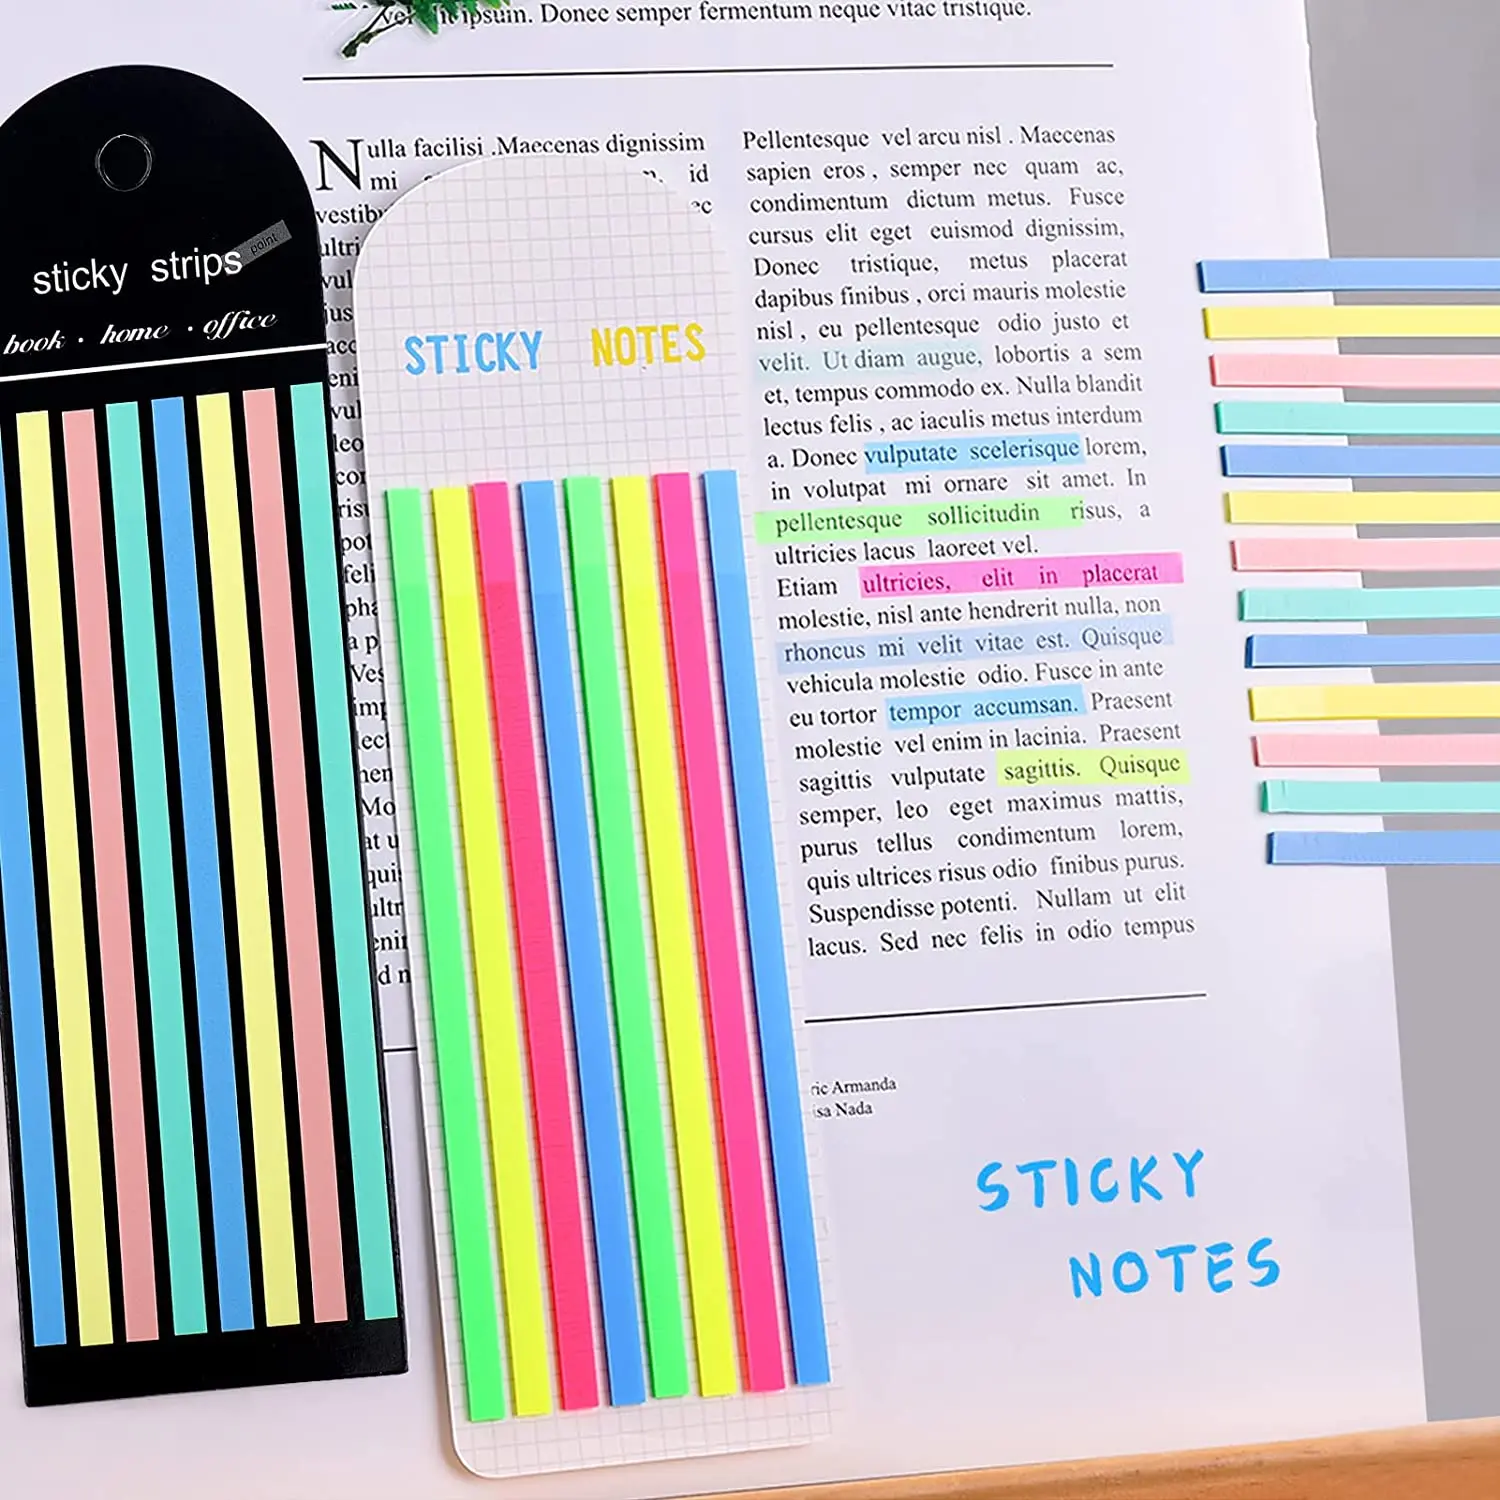 vel ipsum. Donec semper fermentum neque vitae tristique.
sticky strips
point
book · home · office
STICKY NOTES
Nulla facilisi .Maecenas dignissim
mi id
Pellentesque vel arcu nisl . Maecenas
sapien eros , semper nec quam ac,
condimentum dictum metus. Fusce
cursus elit eget euismod dignissim,
Donec tristique, metus placerat
dapibus finibus , orci mauris molestie
nisl , eu pellentesque odio justo et
velit. Ut diam augue, lobortis a sem
et, tempus commodo ex. Nulla blandit
lectus felis , ac iaculis metus interdum
a. Donec vulputate scelerisque lorem,
in volutpat mi ornare sit amet. In
pellentesque sollicitudin risus, a
ultricies lacus laoreet vel.
Etiam ultricies, elit in placerat
molestie, nisl ante hendrerit nulla, non
rhoncus mi velit vitae est. Quisque
vehicula molestie odio. Fusce in ante
eu tortor tempor accumsan. Praesent
molestie vel enim in lacinia. Praesent
sagittis vulputate sagittis. Quisque
semper, leo eget maximus mattis,
purus tellus condimentum lorem,
quis ultrices risus odio finibus purus.
Suspendisse potenti. Nullam ut elit
lacus. Sed nec felis in odio tempus
Armanda
Nada
STICKY
NOTES